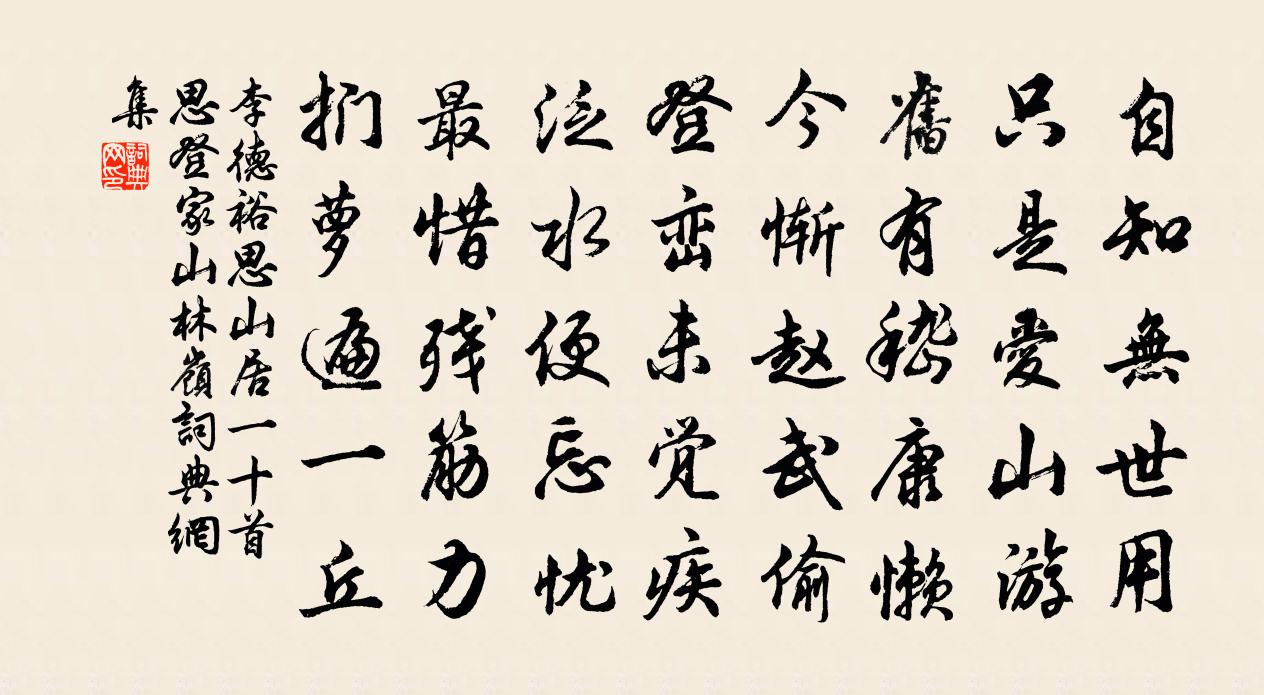 自知無世用
只是愛山游
舊有嵇康懒
今惭赵武偷
登峦未觉疾
泛水便忘忧
最惜残筋力
扪萝遍一丘
李德裕思山居一十首
思登家山林嶺詞典網
集
詞典
网印